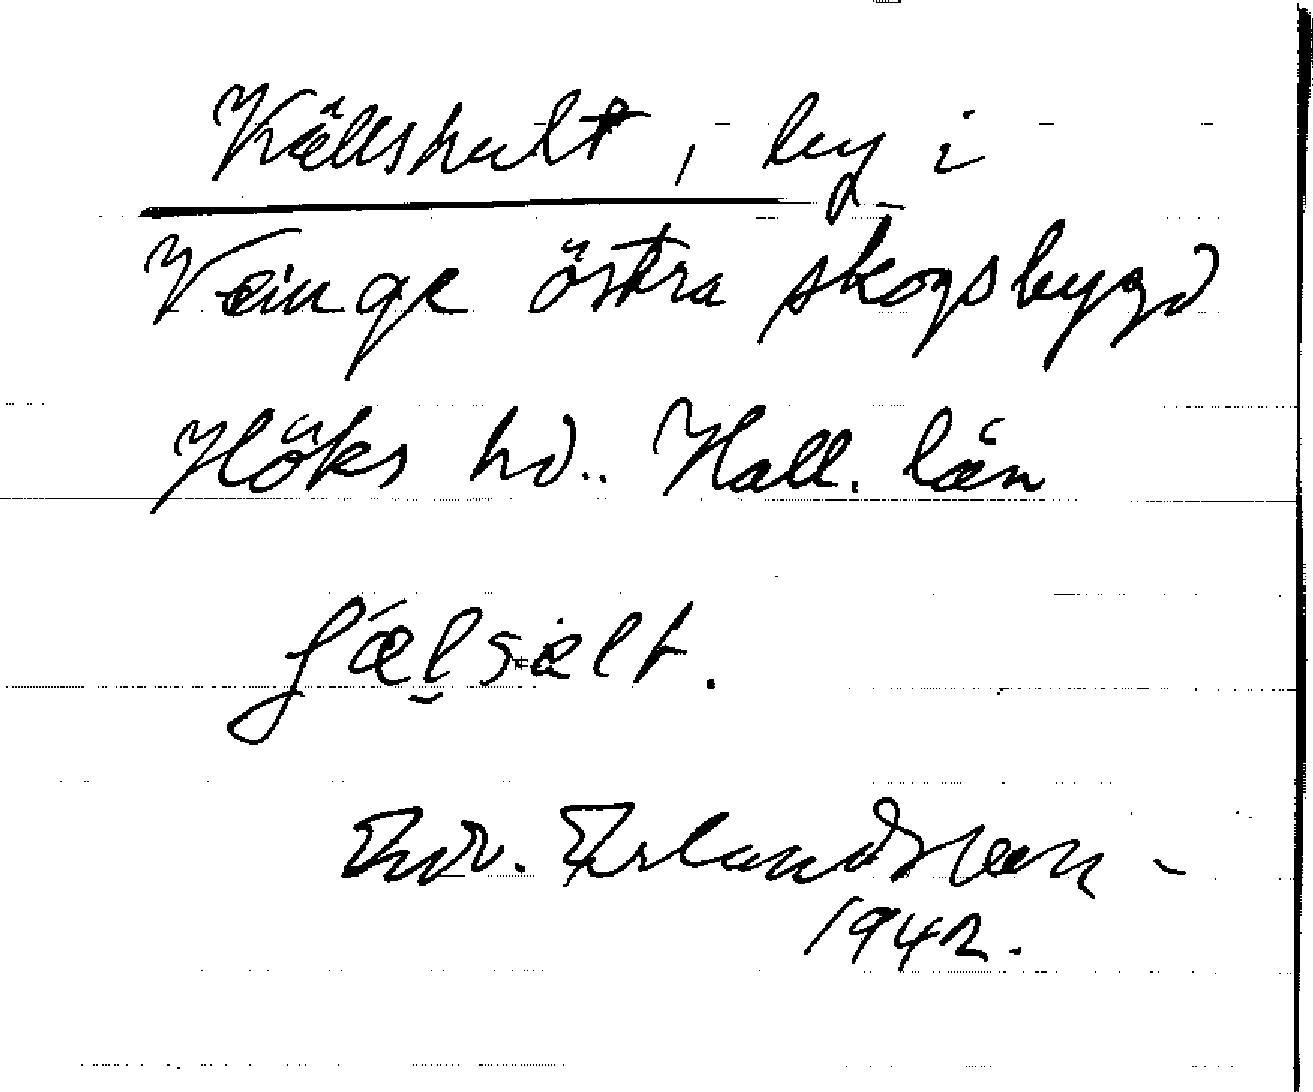 Källshult, by i
Veinge östra skogsbygd
Höks hd. Hall. län
Edv. Erlandsson -
1942.